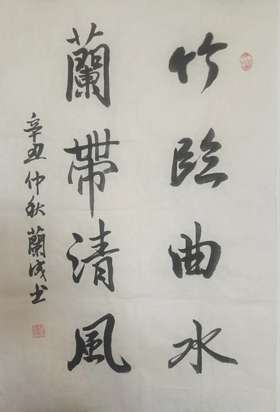 竹臨曲水
蘭帶清風
辛丑仲秋蘭成書